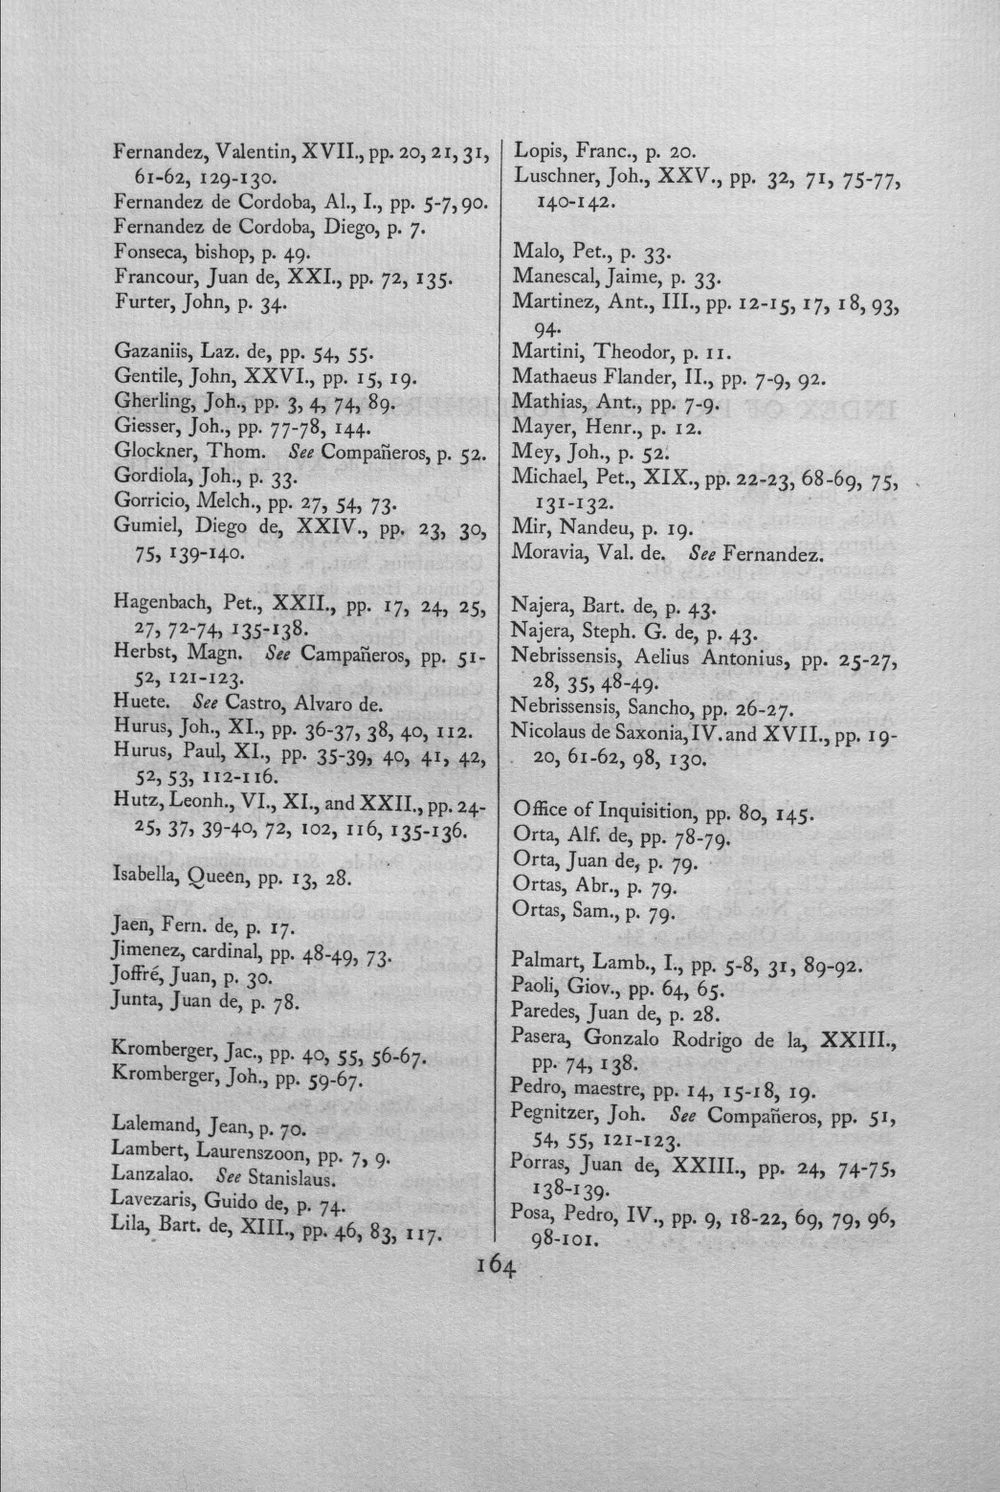 Fernandez, Valentin, XVII., pp. 20, 21, 31,
61-62, 129-130.
Fernandez de Cordoba, Al., I., pp. 5-7, 90.
Fernandez de Cordoba, Diego, p. 7.
Fonseca, bishop, p. 49.
Francour, Juan de, XXI., pp. 72, 135.
Furter, John, p. 34.
Gazaniis, Laz. de, pp. 54, 55.
Gentile, John, XXVI., pp. 15, 19.
Gherling, Joh., pp. 3, 4, 74, 89.
Giesser, Joh., pp. 77-78, 144.
Glockner, Thom. See Compañeros, p. 52.
Gordiola, Joh., p. 33.
Gorricio, Melch., pp. 27, 54, 73.
Gumiel, Diego de, XXIV., pp. 23, 30,
75, 139-140.
Hagenbach, Pet., XXII., pp. 17, 24, 25,
27, 72-74, 135-138.
Herbst, Magn. See Campañeros, pp. 51-
52, 121-123.
Huete. See Castro, Alvaro de.
Hurus, Joh., XI., pp. 36-37, 38, 40, 112.
Hurus, Paul, XI., pp. 35-39, 40, 41, 42,
52, 53, 112-116.
Hutz, Leonh., VI., XI., and XXII., pp. 24-
25, 37, 39-40, 72, 102, 116, 135-136.
Isabella, Queen, pp. 13, 28.
Jaen, Fern. de, p. 17.
Jimenez, cardinal, pp. 48-49, 73.
Joffré, Juan, p. 30.
Junta, Juan de, p. 78.
Kromberger, Jac., pp. 40, 55, 56-67.
Kromberger, Joh., pp. 59-67.
Lalemand, Jean, p. 70.
Lambert, Laurenszoon, pp. 7, 9.
Lanzalao. See Stanislaus.
Lavezaris, Guido de, p. 74.
Lila, Bart. de, XIII., pp. 46, 83, 117.
Lopis, Franc., p. 20.
Luschner, Joh., XXV., pp. 32, 71, 75-77,
140-142.
Malo, Pet., p. 33.
Manescal, Jaime, p. 33.
Martinez, Ant., III., pp. 12-15, 17, 18, 93,
94.
Martini, Theodor, p. 11.
Mathaeus Flander, II., pp. 7-9, 92.
Mathias, Ant., pp. 7-9.
Mayer, Henr., p. 12.
Mey, Joh., p. 52.
Michael, Pet., XIX., pp. 22-23, 68-69, 75,
131-132.
Mir, Nandeu, p. 19.
Moravia, Val. de. See Fernandez.
Najera, Bart. de, p. 43.
Najera, Steph. G. de, p. 43.
Nebrissensis, Aelius Antonius, pp. 25-27,
28, 35, 48-49.
Nebrissensis, Sancho, pp. 26-27.
Nicolaus de Saxonia, IV. and XVII., pp. 19-
20, 61-62, 98, 130.
Office of Inquisition, pp. 80, 145.
Orta, Alf. de, pp. 78-79.
Orta, Juan de, p. 79.
Ortas, Abr., p. 79.
Ortas, Sam., p. 79.
Palmart, Lamb., I., pp. 5-8, 31, 89-92.
Paoli, Giov., pp. 64, 65.
Paredes, Juan de, p. 28.
Pasera, Gonzalo Rodrigo de la, XXIII.,
pp. 74, 138.
Pedro, maestre, pp. 14, 15-18, 19.
Pegnitzer, Joh. See Compañeros, pp. 51,
54, 55, 121-123.
Porras, Juan de, XXIII., pp. 24, 74-75,
138-139.
Posa, Pedro, IV., pp. 9, 18-22, 69, 79, 96,
98-101.
164